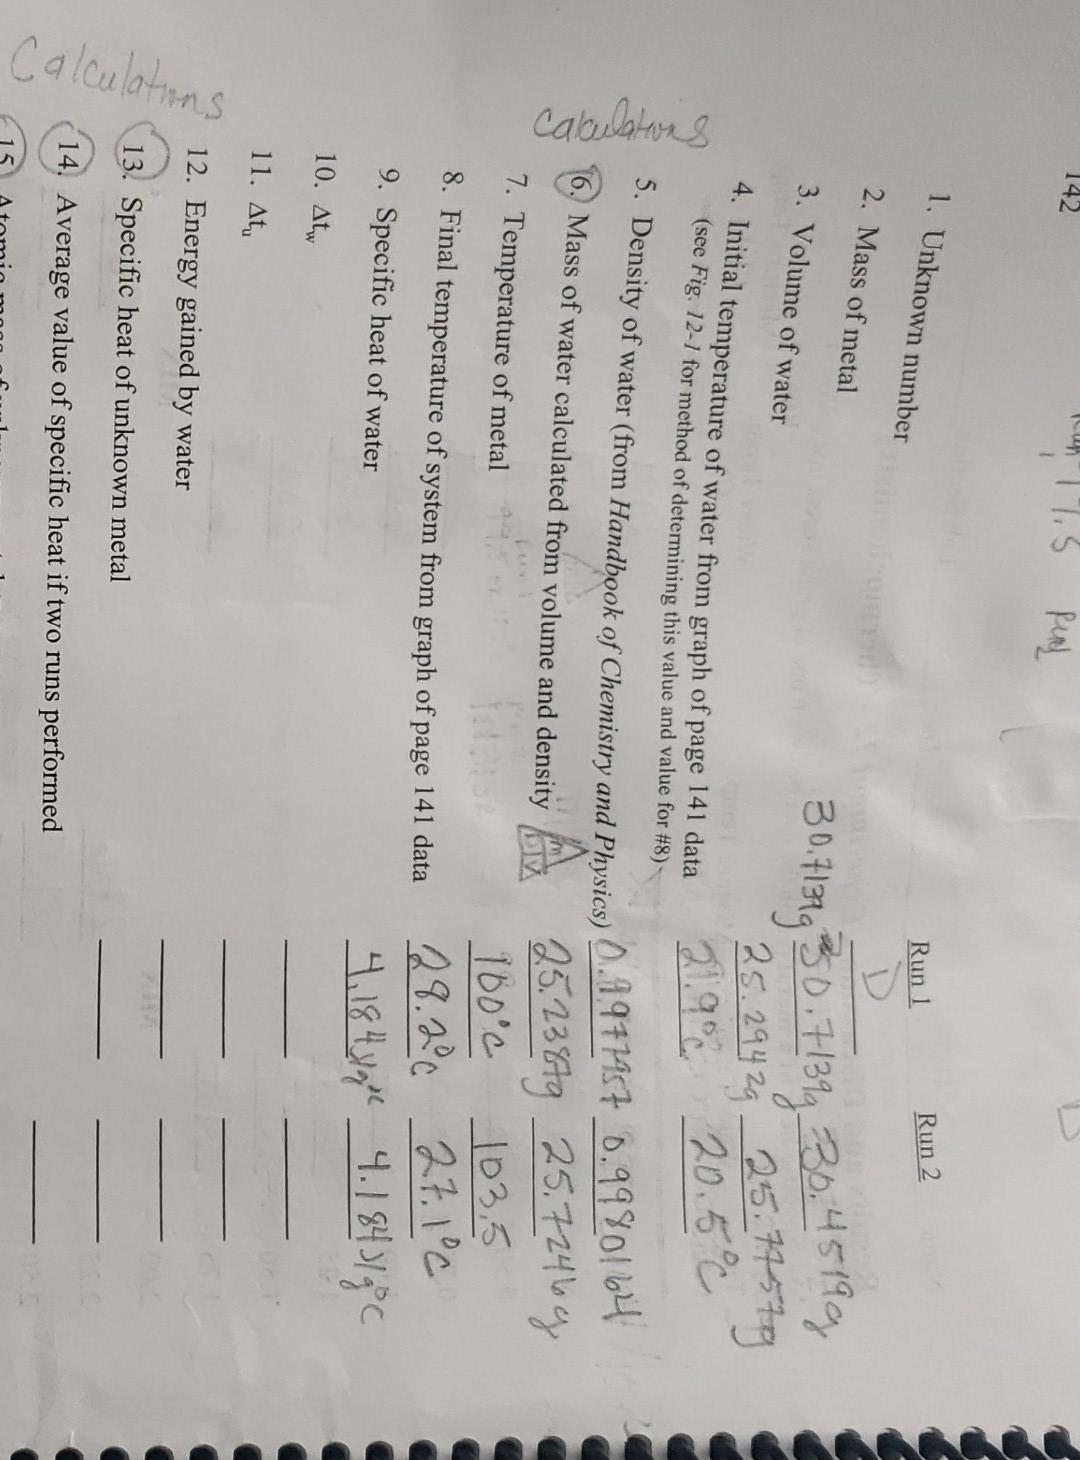 142
Run 1 Run 2
1. Unknown number D
2. Mass of metal 30.7139g 30.7139g 30.4519g
3. Volume of water 25.2942g 25.7757g
4. Initial temperature of water from graph of page 141 data 21.9°C 20.5°C
(see Fig. 12-1 for method of determining this value and value for #8)
5. Density of water (from Handbook of Chemistry and Physics) 0.9977957 0.9980164
calculations
6. Mass of water calculated from volume and density m D V 25.2387g 25.7246g
7. Temperature of metal 100°C 103.5
8. Final temperature of system from graph of page 141 data 28.2°C 27.1°C
9. Specific heat of water 4.184J/g°C 4.184J/g°C
10. Δtw
11. Δtu
12. Energy gained by water
Calculations
13. Specific heat of unknown metal
14. Average value of specific heat if two runs performed
15. Atomic mass of